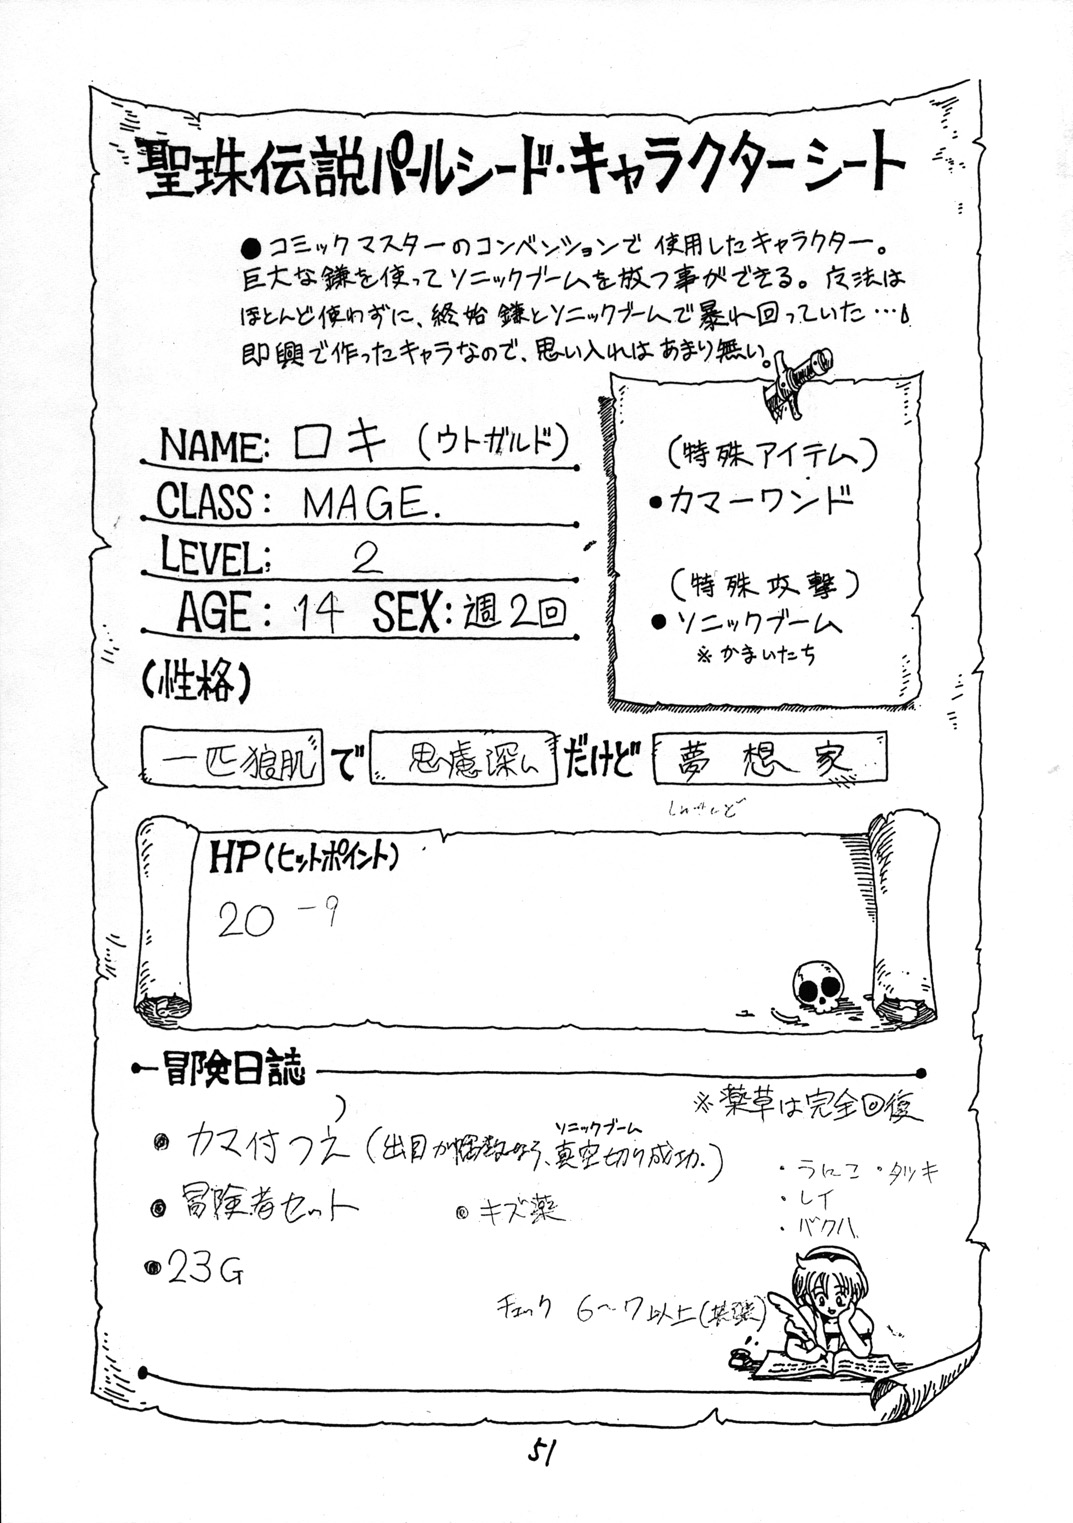 聖珠伝説パールシード・キャラクターシート
●コミックマスターのコンベンションで使用したキャラクター。
巨大な鎌を使ってソニックブームを放つ事ができる。魔法は
ほとんど使わずに、終始鎌とソニックブームで暴れ回っていた…
即興で作ったキャラなので、思い入れはあまり無い。
NAME: ロキ (ウトガルド)
CLASS: MAGE.
LEVEL: 2
AGE: 14 SEX: 週2回
(特殊アイテム)
●カマーワンド
(特殊攻撃)
●ソニックブーム
※かまいたち
(性格)
一匹狼肌で思慮深いだけど夢想家
HP(ヒットポイント)
20 -9
冒険日誌
※薬草は完全回復
●カマ付つえ(出目が偶数なら、真空切り成功.)
ソニックブーム
・うにこ ・タツキ
●冒険者セット ●キズ薬
・レイ
・バクハ
●23G
チェック 6~7以上
51